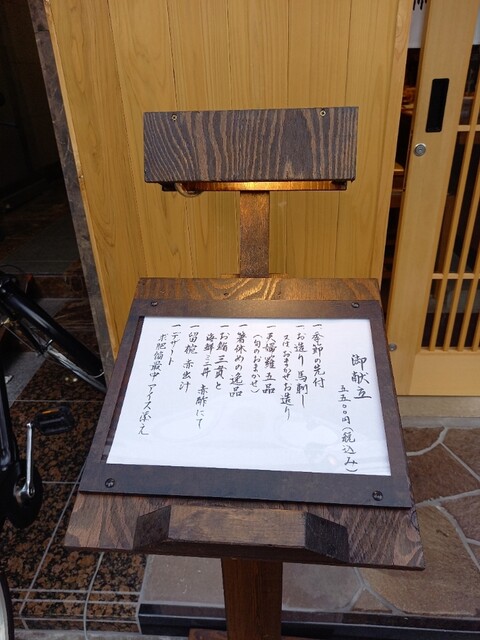 御献立
五五〇〇円(税込み)
一季節の先付
一お造り 馬刺し
又は おまかせお造り
一天婦羅五品
(旬のおまかせ)
一箸休めの逸品
一お鮨三貫と
海鮮ミニ丼 赤酢にて
一留椀 赤出汁
一デザート
求肥餡最中 アイス添え